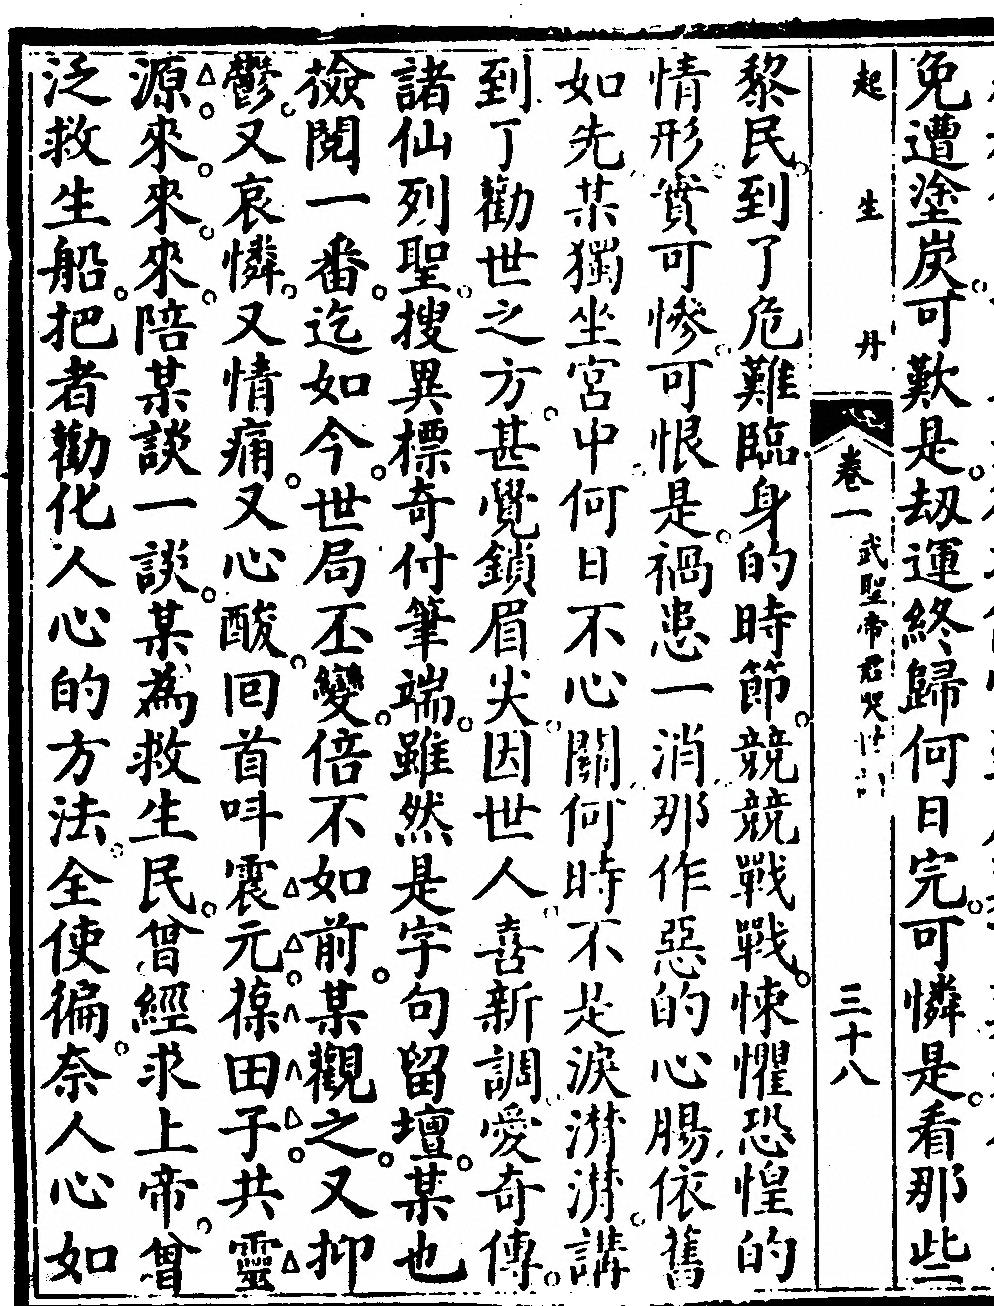 免遭塗炭可歎是劫運終歸何日完可憐是看那些
起生丹
卷一
武聖帝君哭
三十八
黎民到了危難臨身的時節競競戰戰悚懼恐惶的
情形實可慘可恨是禍患一消那作惡的心腸依舊
如先某獨坐宮中何日不心關何時不是淚潸潸講
到了勸世之方甚覺鎖眉尖因世人喜新調愛奇傳
諸仙列聖搜異標奇付筆端雖然是字句留壇某也
檢閱一番迄如今世局丕變倍不如前某觀之又抑
鬱又哀憐又情痛又心酸回首呌震元葆田子共靈
源來來來陪某談一談某為救生民曾經求上帝曾
泛救生船把者勸化人心的方法全使徧奈人心如